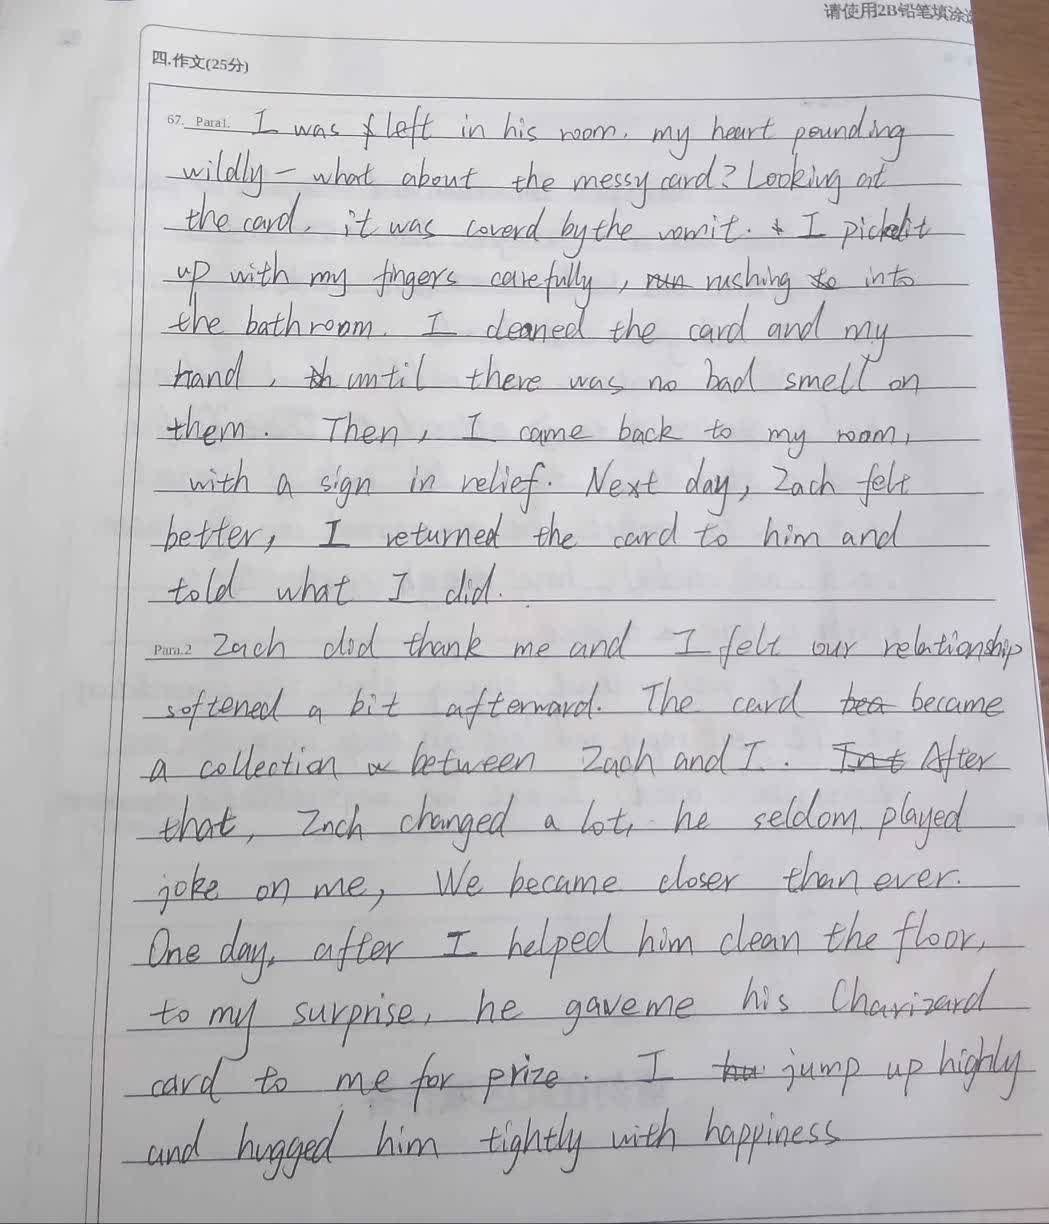 请使用2B铅笔填涂
四.作文(25分)
67. Para1. I was left in his room. my heart pounding
wildly – what about the messy card? Looking at
the card, it was coverd by the vomit. I picked it
up with my fingers carefully, run rushing to into
the bathroom. I cleaned the card and my
hand, th until there was no bad smell on
them. Then, I came back to my room,
with a sign in relief. Next day, Zach felt
better, I returned the card to him and
told what I did.
Para.2 Zach did thank me and I felt our relationship
softened a bit afterward. The card bea became
a collection between Zach and I. Int After
that, Zach changed a lot, he seldom played
joke on me, We became closer than ever.
One day, after I helped him clean the floor,
to my surprise, he gave me his Charizard
card to me for prize. I jump up highly
and hugged him tightly with happiness